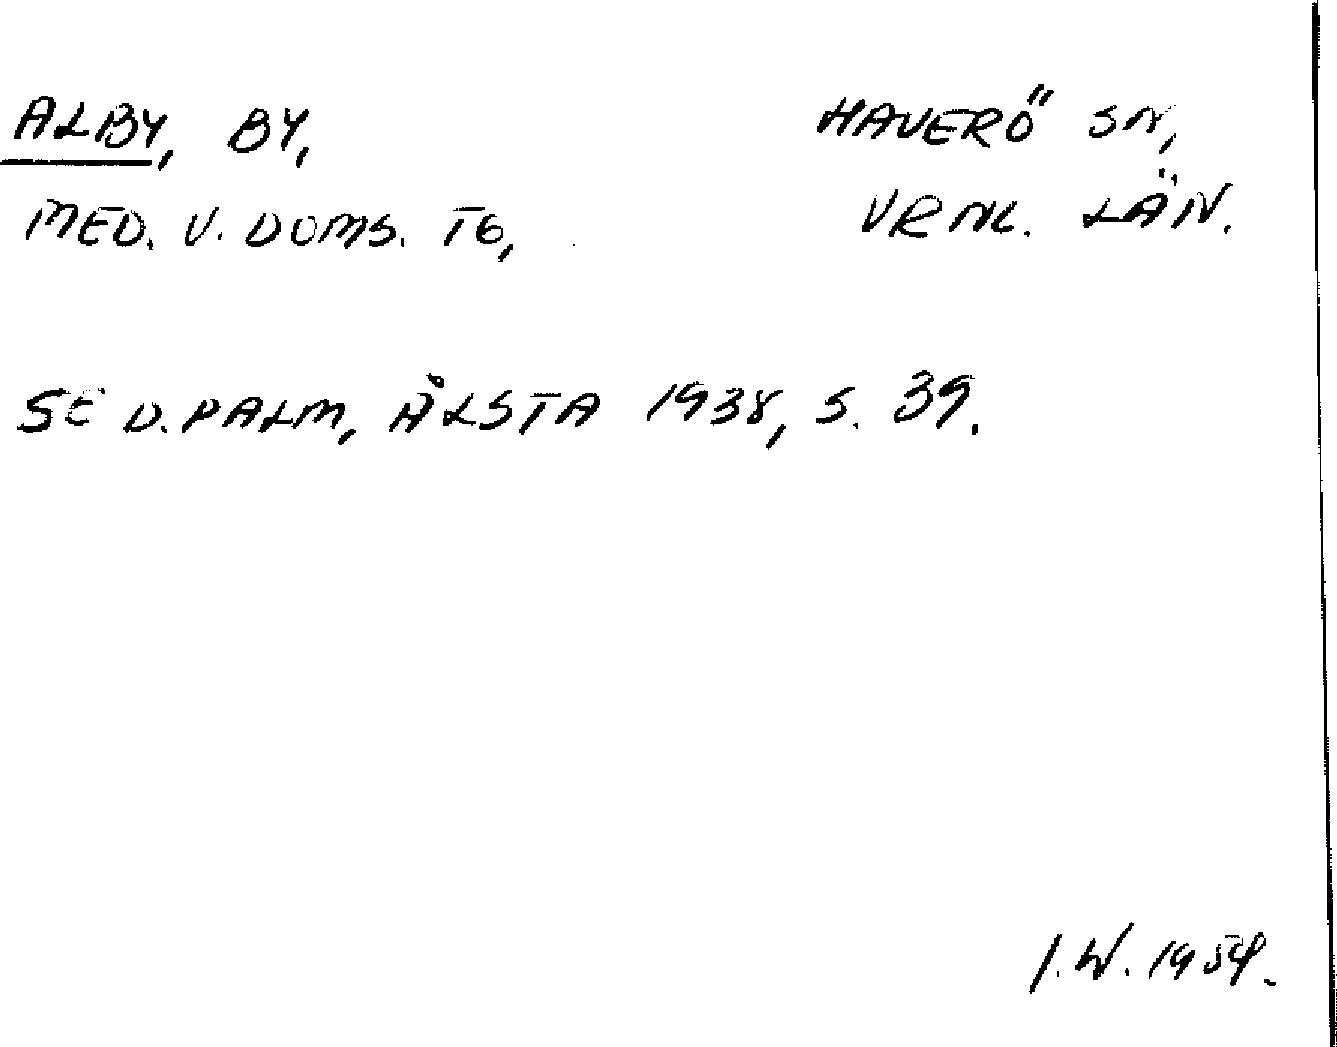 ALBY, BY, HAVERÖ SN,
MED. V. DOMS. TG, VRNL. LÄN.
SE D. PALM, ÅLSTA 1938, S. 39.
I. W. 1954.